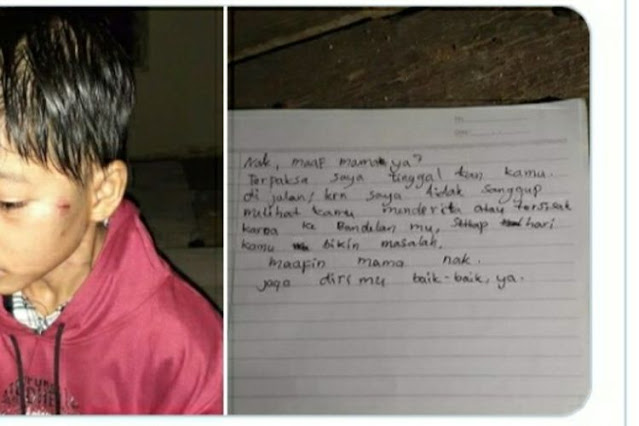 Nak, maap mama ya?
Terpaksa saya tinggal kan kamu.
di jalan, krn saya tidak sanggup
melihat kamu menderita atau tersisak
karna ke Bandelan mu, Setiap hari
kamu bikin masalah,
maapin mama nak.
jaga diri mu baik-baik, ya.